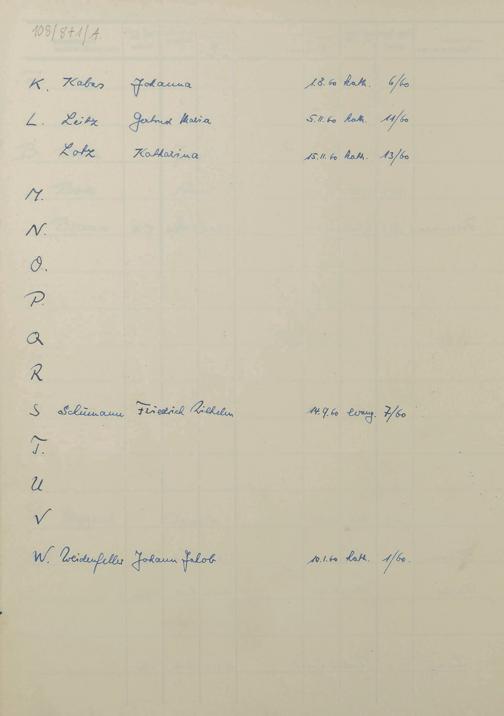 108/8+1/A
K. Kabas Johanna 1.8.60 kath. 6/60
L. Leitz Gertrud Maria 5.11.60 kath. 11/60
Lotz Katharina 15.11.60 kath. 13/60
M.
N.
O.
P.
Q
R
S Schümann Friedrich Wilhelm 14.9.60 evang. 7/60
T.
U
V
W. Weidenfeller Johann Jakob 10.1.60 kath. 1/60.